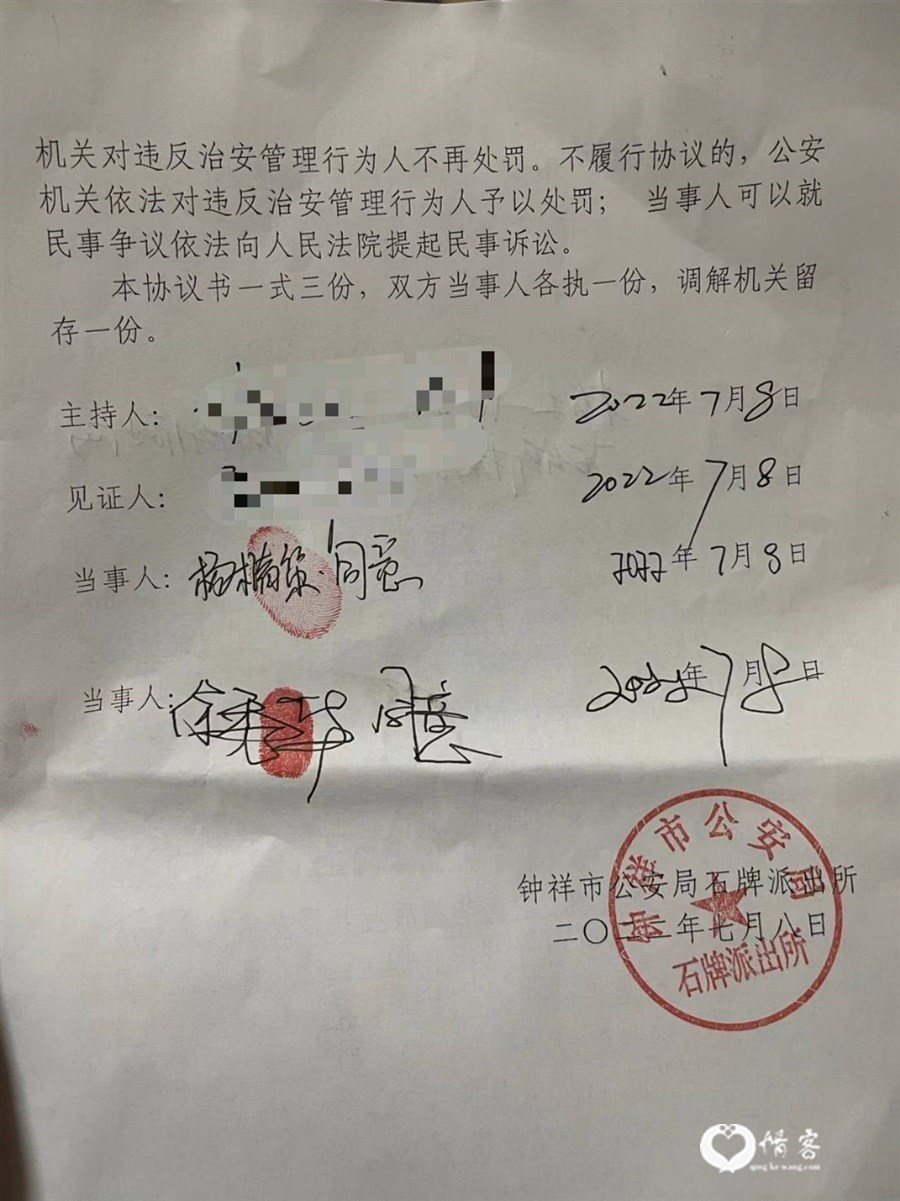 机关对违反治安管理行为人不再处罚。不履行协议的，公安
机关依法对违反治安管理行为人予以处罚； 当事人可以就
民事争议依法向人民法院提起民事诉讼。
本协议书一式三份，双方当事人各执一份，调解机关留
存一份。
主持人： 2022年7月8日
见证人： 2022年7月8日
当事人：杨 同意 2022年7月8日
当事人： 同意 2022年7月8日
钟祥市公安局石牌派出所
二〇二二年七月八日
钟祥市公安局
石牌派出所
情客
qingkewang.com